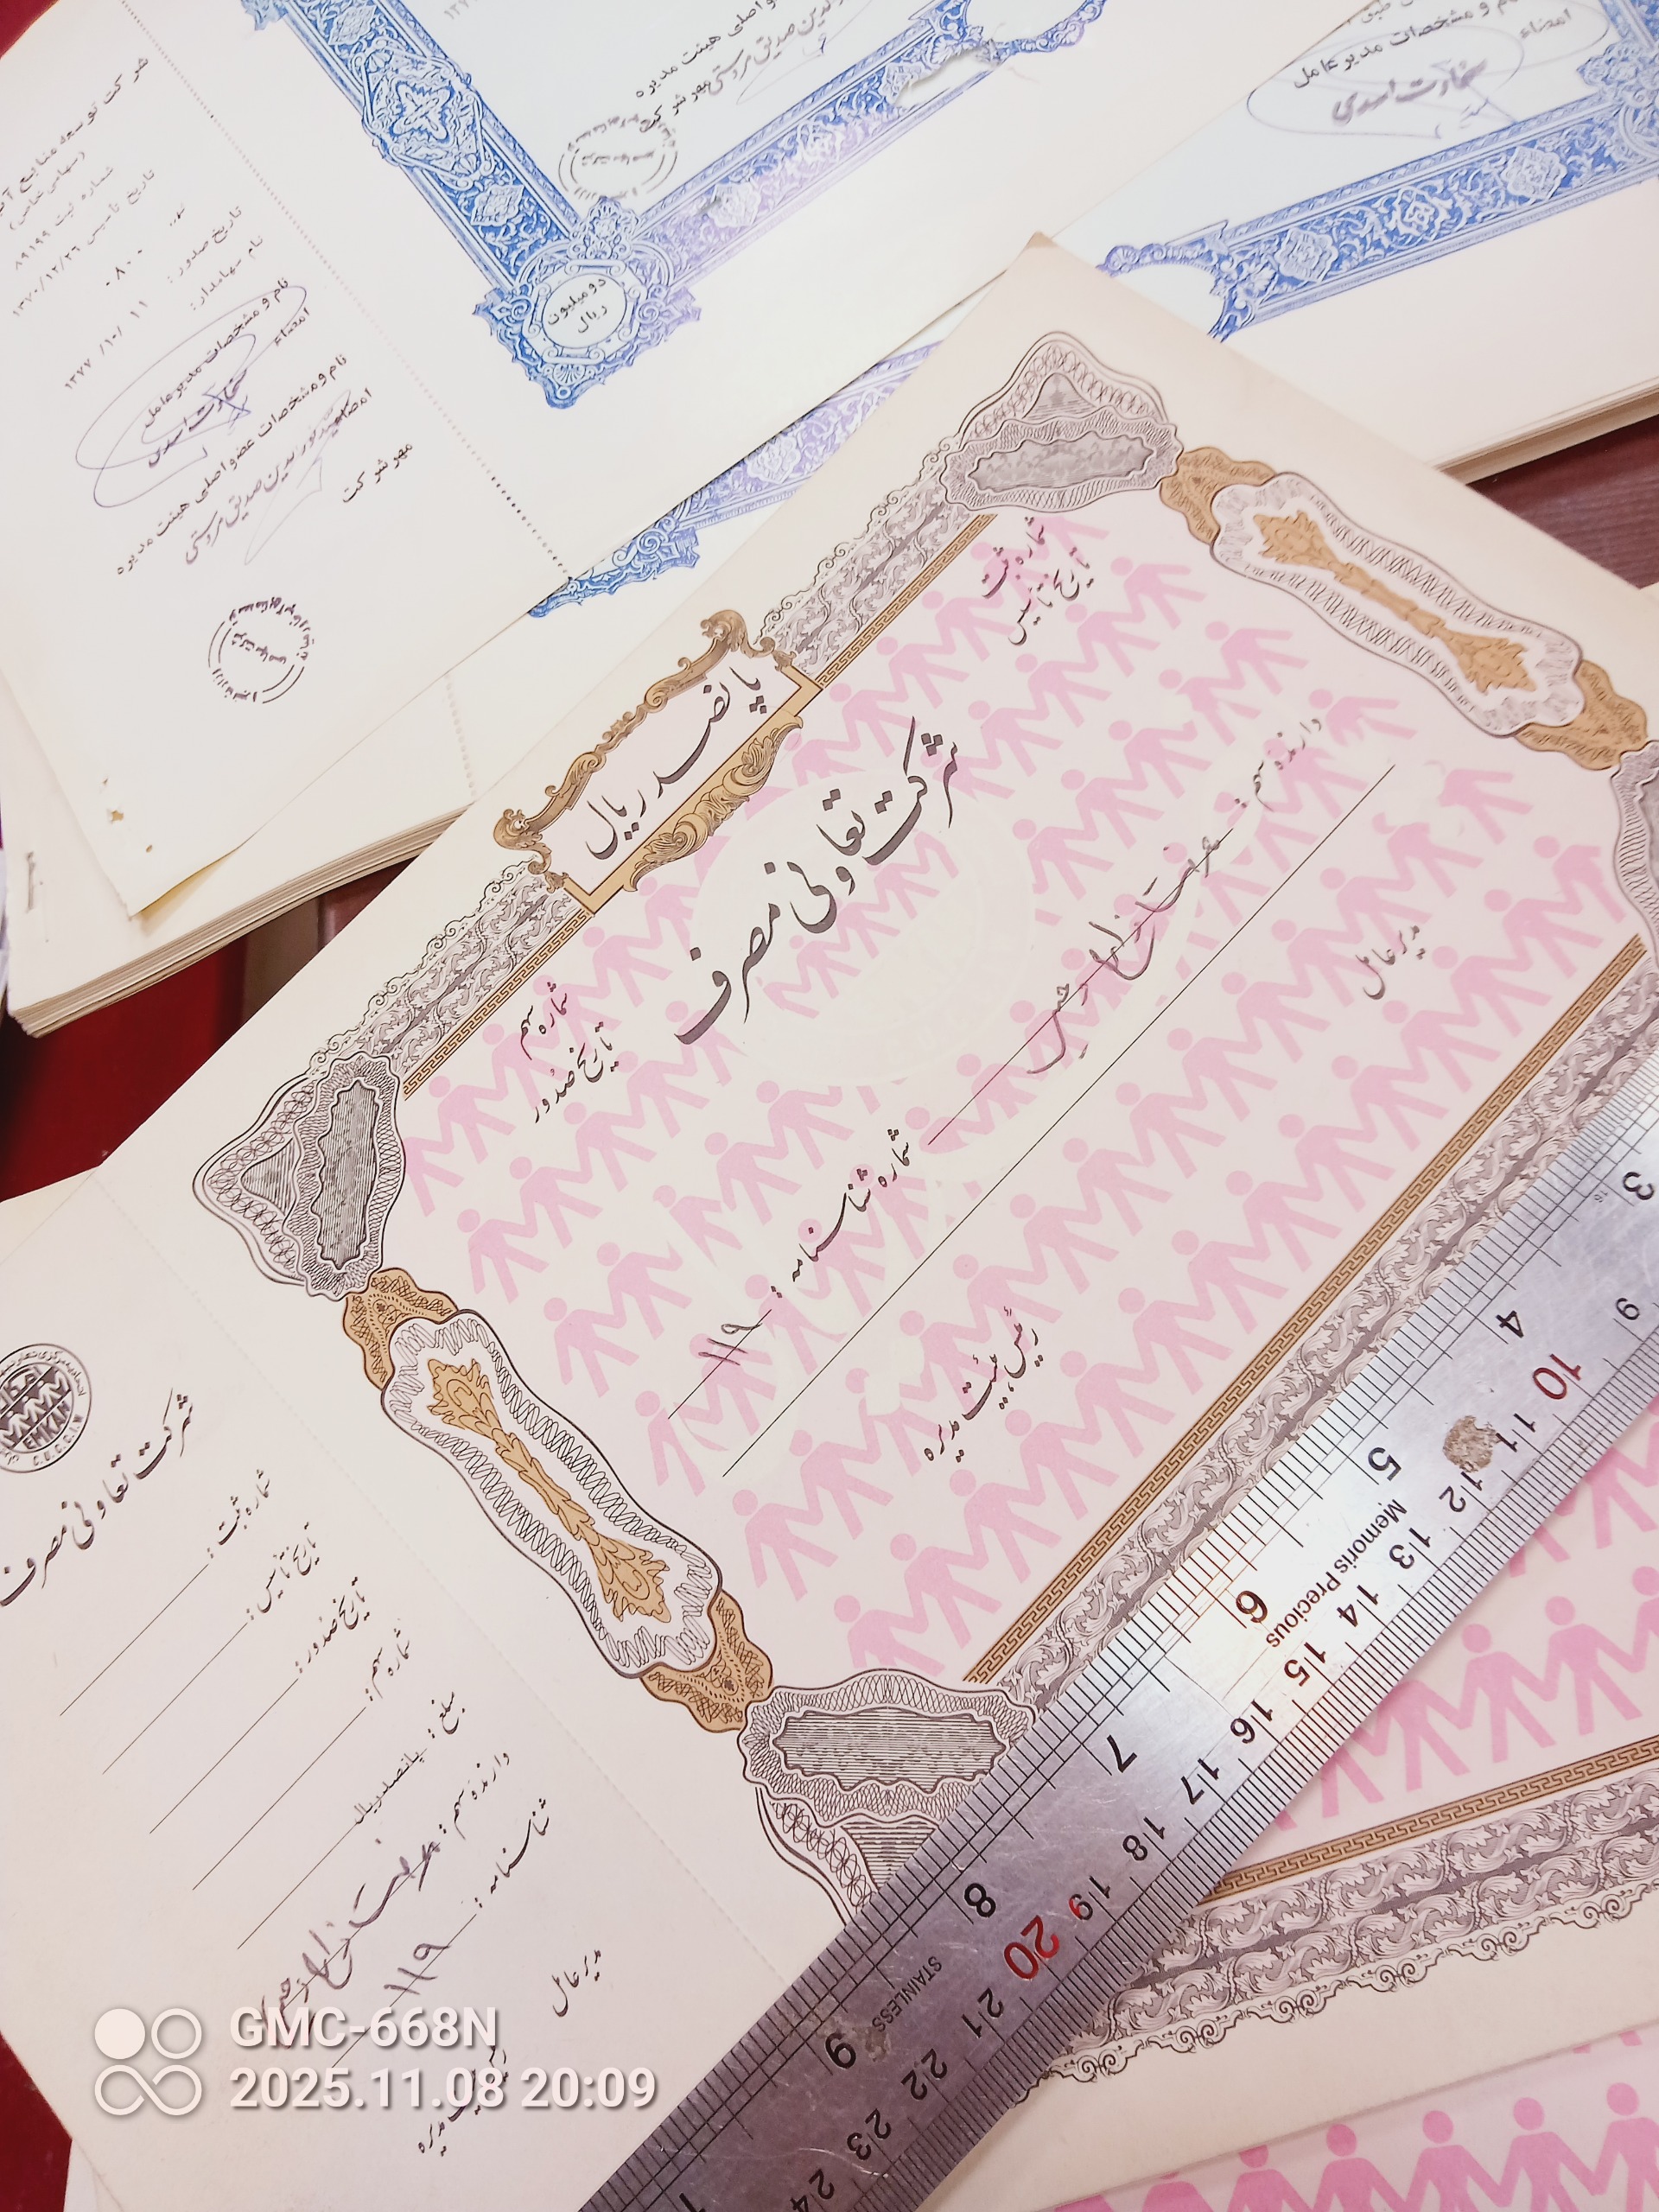 شرکت توسعه منابع
(سهامی خاص)
شماره ثبت ۸۹۱۹۹
تاریخ تأسیس ۱۳۷۰/۱۲/۲۶
تاریخ صدور: ۱۳۷۷/۱۰/۱۱
نام سهامدار:
نام و مشخصات مدیر عامل
امضاء
نام و مشخصات عضو اصلی هیئت مدیره
امضاء
مهر شرکت
اصلی هیئت مدیره
مهر شرکت
دو میلیون
ریال
و مشخصات مدیر عامل
امضاء
پانصد ریال
شماره ثبت
تاریخ تأسیس
شماره سهم
تاریخ صدور
شرکت تعاونی مصرف
دارنده سهم:
شماره شناسنامه: ۱۱۹
مدیر عامل
رئیس هیئت مدیره
EMKAN
شرکت تعاونی مصرف
شماره ثبت:
تاریخ تأسیس:
تاریخ صدور:
شماره سهم:
مبلغ: پانصد ریال
دارنده سهم:
شناسنامه: ۱۱۹
مدیر عامل
هیئت مدیره
3 4 5 6 7 8 9
9 10 11 12 13 14 15 16 17 18 19 20 21 22 23 24
Memoris Precious
STAINLESS
GMC-668N
2025.11.08 20:09